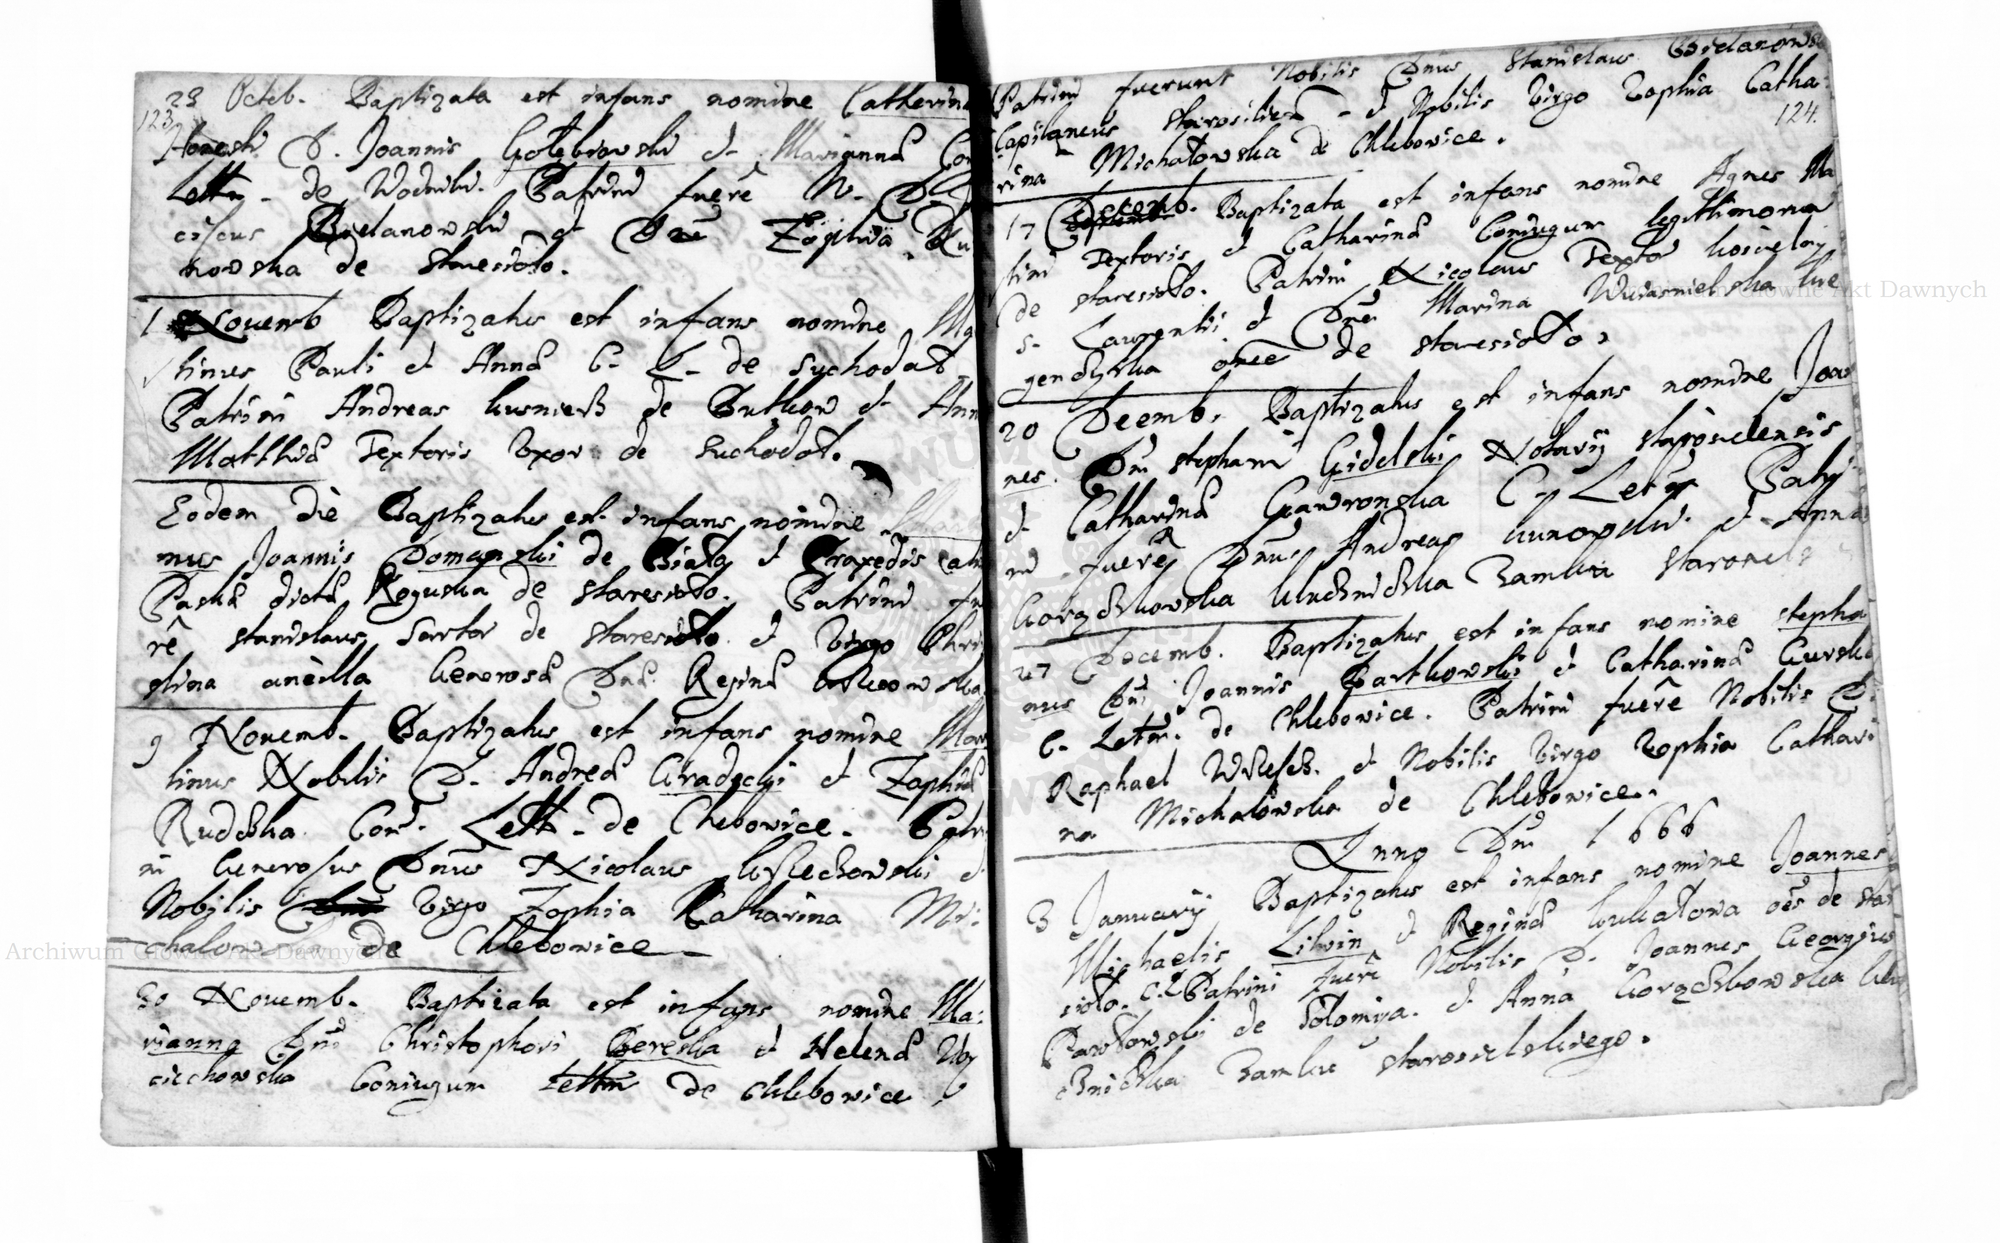 23 Octob. Baptizata est infans nomine Catherina
123
Honesti D. Joannis Gołębiowski et Mariannæ Con
Lettm - de Wodniki. Patrini fuere N. D.
ciscus Bielanowski et Dna Zophia
nowska de Staresioło.
1 Novemb Baptizatus est infans nomine Mar
tinus Pauli et Annæ C. L. de Suchodoł
Patrini Andreas kusnierz de Butkow et Ann
Matthiæ Textoris Uxor de Suchodoł.
Eodem die Baptizatus est infans nomine
nus Joannis Domanski de Biały et Praxedis
Paskæ dictæ Roguska de Staresioło. Patrini fu
re Stanislaus Sartor de Staresioło et Virgo Chri
stina ancilla Generosæ Dnæ Reginæ
9 Novemb. Baptizatus est infans nomine Mar
tinus Nobilis D. Andreæ Gradzcki et Zophiæ
Rudzka Con. Lettm - de Chlebovice - Patri
ni Generosus Dnus Nicolaus et
Nobilis Virgo Zophia Katharina Mi:
chalow de Chlebowice
30 Novemb. Baptizata est infans nomine Ma:
rianna Dni Christophori Bereska et Helenæ Woy
ciechowska Coniugum Lettm de Chlebowice
Patrini fuerunt Nobilis Dnus Stanislaus Bielanowski
Capitaneus Starosilien - et Nobilis Virgo Zophia Catha:
124.
rina Michałowska de Chlebovice.
17 Decemb. Baptizata est infans nomine Agnes Ma
tini Textoris et Catharinæ Coniugum legittimorum
de Staresioło. Patrini Nicolaus Textor
S. Laurentii et Dna Marina
de Staresioło.
20 Decemb. Baptizatus est infans nomine Joan
nes. Dni Stephani Gidelski Notarij Starosielensis
et Catharinæ Gawronska C. Letm Patri
ni fuere Dnus Andreas et Anna
Gorzchkowska kluczniczka Zamku Starosiels
27 Decemb. Baptizatus est infans nomine Stepha
nus Dni Joannis Bartkowski et Catharinæ Gurska
C. Letm. de Chlebovice. Patrini fuere Nobilis D.
Raphael et Nobilis Virgo Zophia Cathari
na Michałowska de Chlebovice.
Anno Dni 1666
3 Januarij Baptizatus est infans nomine Joannes
Michaelis Litwin et Reginæ de Stare
sioło. C. L. Patrini fuere Nobilis D. Joannes Georgius
Pawłowski de Tołomyia. et Anna Gorzchkowska klu
czniczka Zamku Starosielskiego.
Archiwum Główne Akt Dawnych
Archiwum Główne Akt Dawnych